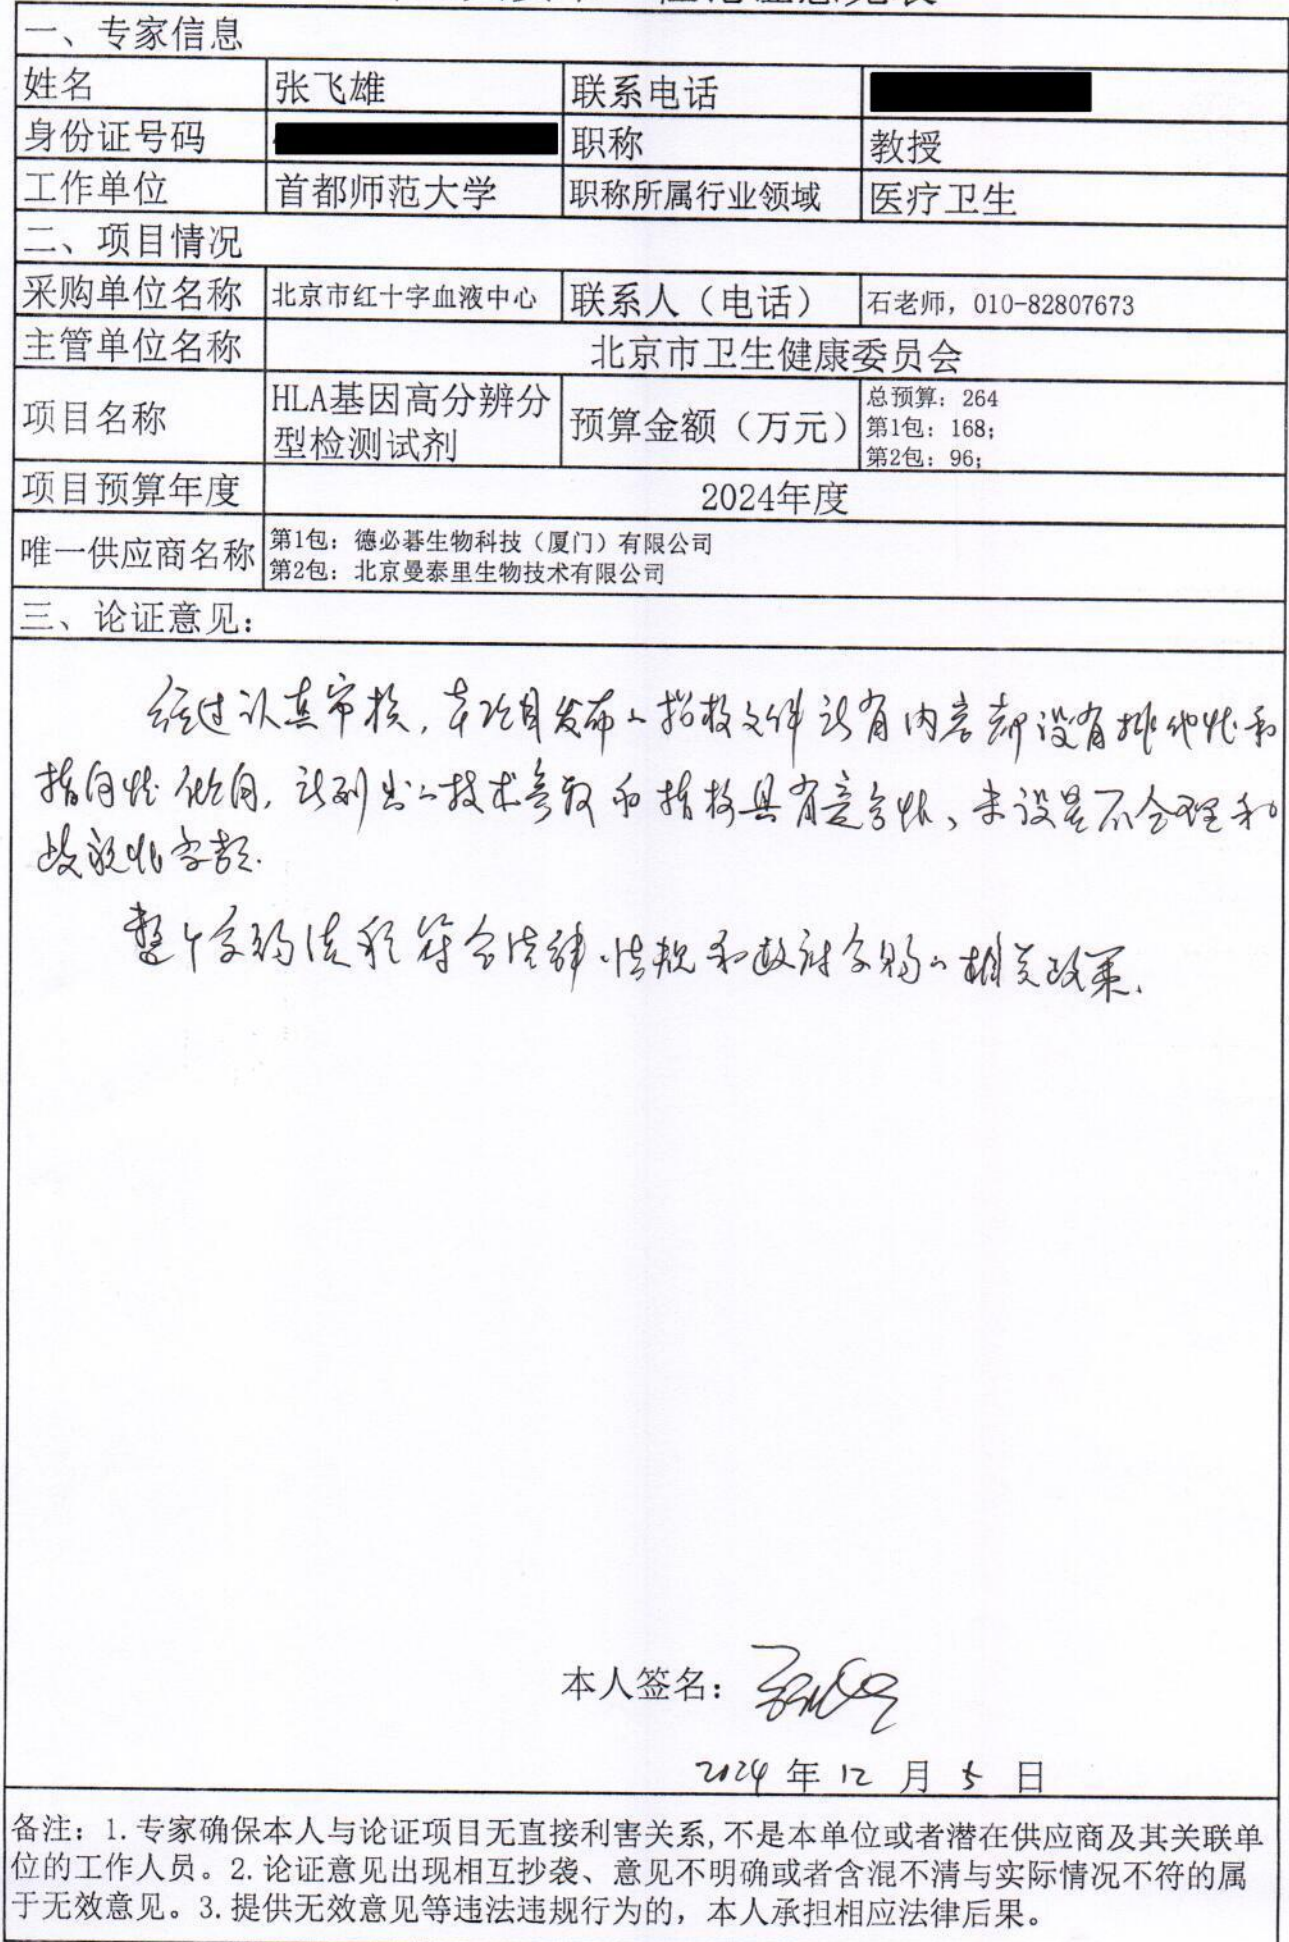 一、专家信息
姓名 张飞雄 联系电话
身份证号码 职称 教授
工作单位 首都师范大学 职称所属行业领域 医疗卫生
二、项目情况
采购单位名称 北京市红十字血液中心 联系人（电话） 石老师，010-82807673
主管单位名称 北京市卫生健康委员会
项目名称 HLA基因高分辨分型检测试剂 预算金额（万元） 总预算：264 第1包：168； 第2包：96；
项目预算年度 2024年度
唯一供应商名称 第1包：德必碁生物科技（厦门）有限公司
第2包：北京曼泰里生物技术有限公司
三、论证意见：
经过认真审核，本项目发布的招标文件所有内容都没有排他性和
指向性倾向，所列出的技术参数和指标具有竞争性、未设置不合理和
歧视性条款.
整个采购流程符合法律、法规和政府采购的相关政策.
本人签名：
2024 年 12 月 5 日
备注：1.专家确保本人与论证项目无直接利害关系,不是本单位或者潜在供应商及其关联单
位的工作人员。2.论证意见出现相互抄袭、意见不明确或者含混不清与实际情况不符的属
于无效意见。3.提供无效意见等违法违规行为的，本人承担相应法律后果。